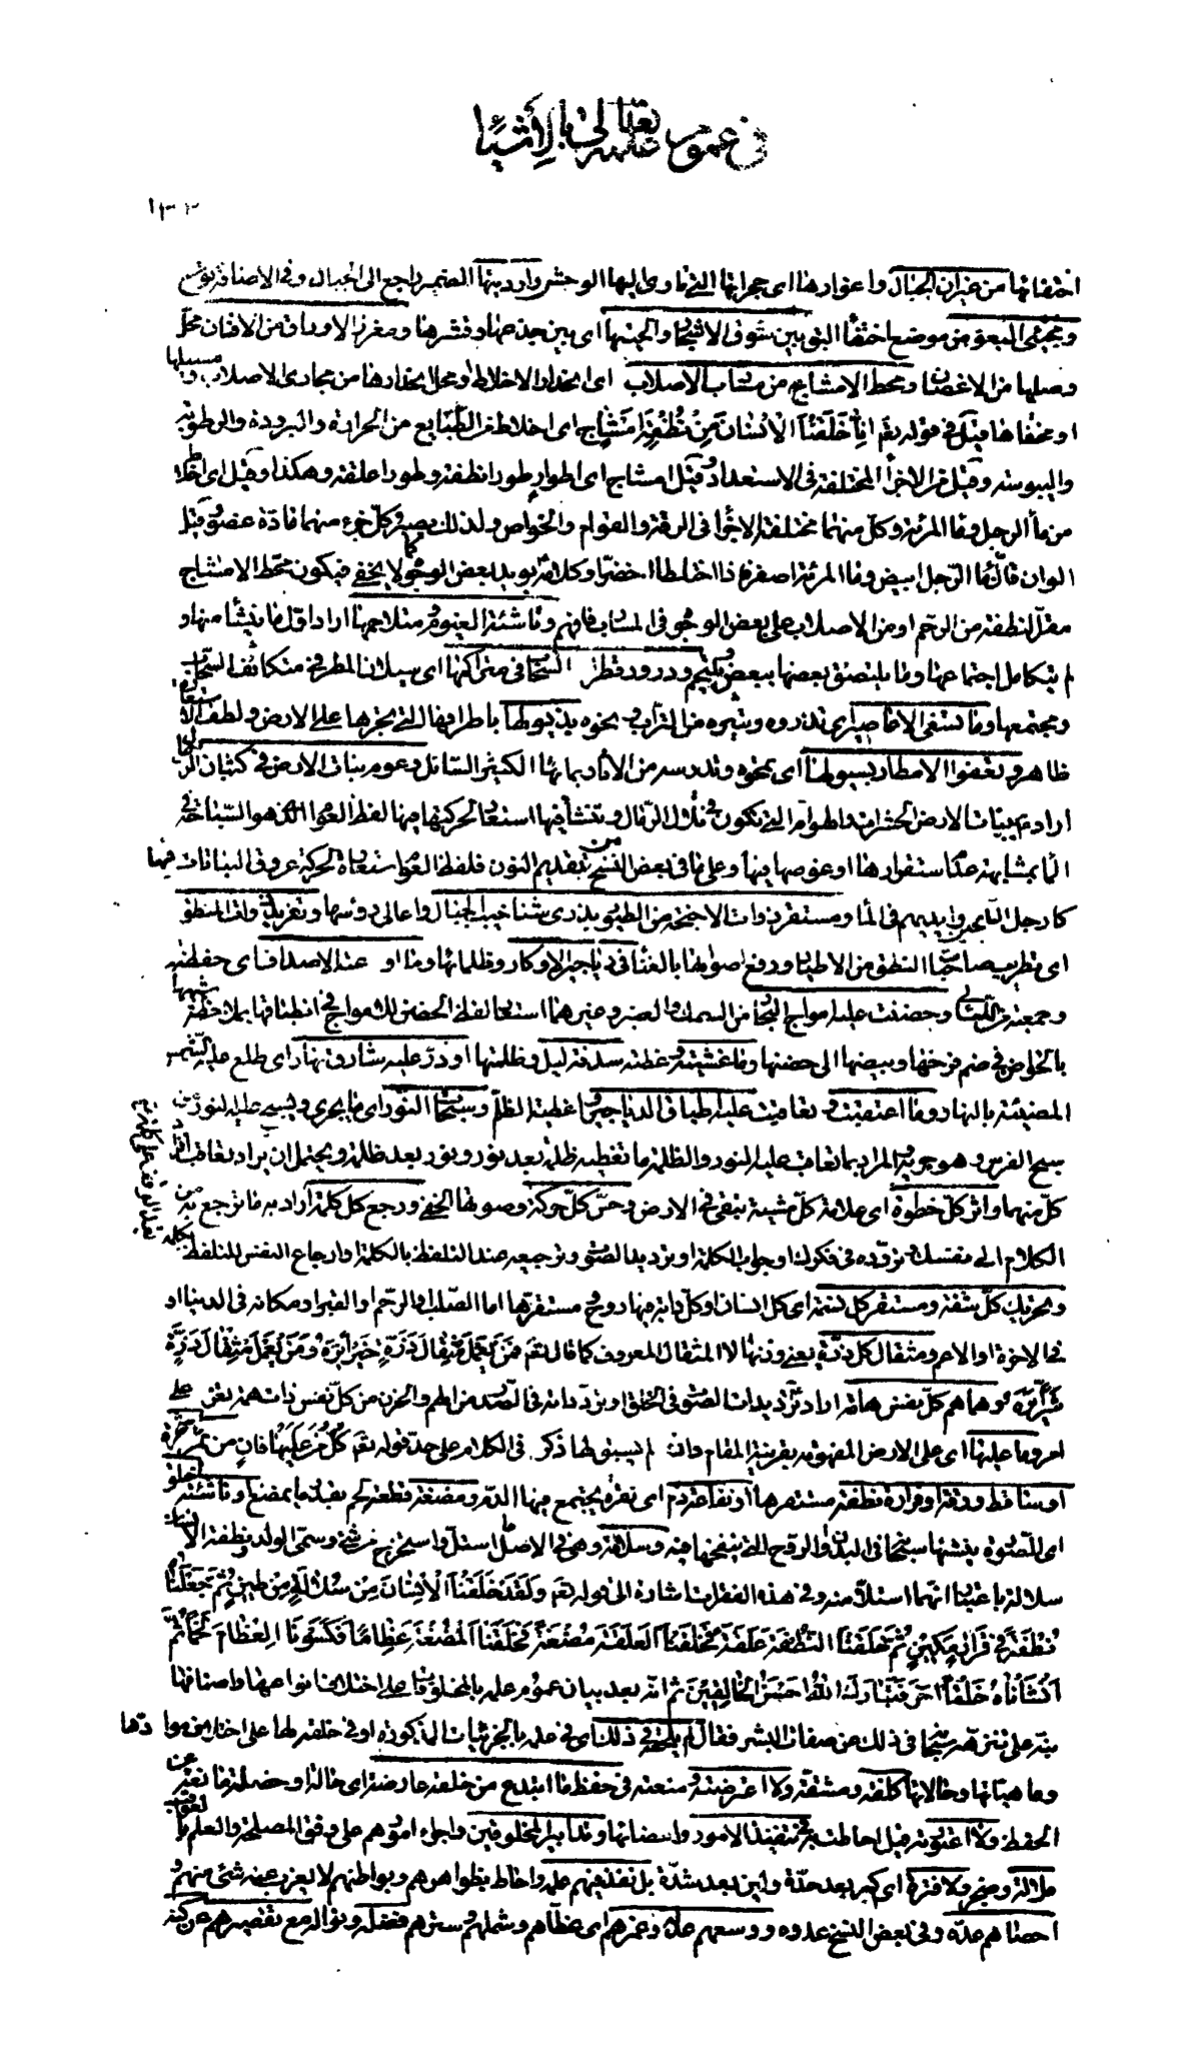 في عموم علمه تعالى بالأشياء
١٣٢
اختفائها من غيران الجبال واغوارها اى حجراتها التى تاوى اليها الوحش واوديتها الضمير راجع الى الجبال وفى الاضافة توسع
ومختبى البعوض موضع اختفاء البق بين سوق الاشجار والحيتها اى بين جذعها وقشرها ومغرز الاوراق من الافنان محل
وصلها من الاغصان ومحط الامشاج من مسارب الاصلاب اى انحدار الاخلاط او محل انحدارها من مجارى الاصلاب ومسيلها
او مخفاها قيل فى قوله تعم انا خلقنا الانسان من نطفة امشاج اى اخلاط من الطبايع من الحرارة والبرودة والرطوبة
واليبوسة وقيل من الاجزاء المختلفة فى الاستعداد وقيل امشاج اى اطوار طورا نطفة وطورا علقة وهكذا وقيل اى اخلاط
من ماء الرجل وماء المرئة وكل منهما مختلفة الاجزاء فى الرقة والقوام والخواص ولذلك يصير كل جزء منهما مادة عضو وقيل
الوان فان ماء الرجل ابيض وماء المرئة اصفر فاذا اختلطا اخضرا وكلامه يؤيد بعض الوجوه كما لا يخفى فيكون محط الامشاج
مقر النطفة من الرحم او من الاصلاب على بعض الوجوه فى المسارب فافهم وناشئة الغيوم ومتلاحمها اراد اول ما ينشأ منها و
لم يتكامل اجتماعها وما يلتصق بعضها ببعض ويلتحم ودرور قطر السحاب فى متراكمها اى سيلان المطر فى متكاثف السحاب
ومجتمعها وما تسفى الاعاصير اى تذروه وتثيره من التراب ونحوه بذيولها باطرافها التى تجرها على الارض ولطف الاستعارة
ظاهر وتعفو الامطار بسيولها اى تمحوه وتدرسه من الاثار بمائها الكثير السائل وعوم بنات الارض فى كثبان الرمال
اراد ببنات الارض الحشرات والهوام التى تكون فى تلال الرمال وتنشأ فيها استعار لحركتها فيها لفظ العوم الذى هو السباحة فى
الماء بمشابهة عدم استقرارها او غوصها فيها وعلى ما فى بعض النسخ من تقديم النون فلفظ العوم استعارة لحركة عروق النباتات فيها
كارجل السابحين وايديهم فى الماء ومستقر ذوات الاجنحة من الطيور بذرى شناخيب الجبال واعالى رؤسها وتغريد ذوات المنطق
اى تطريب صاحبات النطق من الاطيار ورفع اصواتها بالغناء فى دياجير الاوكار وظلماتها وما او عته الاصداف اى حفظته
وجمعته من اللئالى وحضنت عليه امواج البحار من السمك والعنبر وغيرهما استعار لفظ الحضن للامواج فى انطباقها بملاحظة شبهها
بالحواضن فى ضم فرخها وبيضها الى حضنها وما غشيته وغطته سدفة ليل وظلمتها او ذر عليه شارق نهار اى طلع عليه الشمس
المضيئة بالنهار وما اعتقبت وتعاقبت عليه اطباق الدياجير واغطية الظلم وسبحات النور اى ما يجرى ويسبح عليه النور من
سبح الفرس وهو جريه المراد بما تعاقب عليه النور والظلمة ما تغطيه ظلمة بعد نور ونور بعد ظلمة ويحتمل ان يراد تعاقب افراد
كل منهما واثر كل خطوة اى علامة كل مشية تبقى فى الارض وحس كل حركة وصوتها الخفى ورجع كل كلمة اراد به ما ترجع به من
الكلام الى نفسك وتردده فى فكرك او جواب الكلمة او ترديد الصوت وترجيعه عند التلفظ بالكلمة او ارجاع النفس للتلفظ بكلمة
وتحريك كل شفة ومستقر كل نسمة اى كل انسان او كل دابة فيها روح ومستقرها اما الصلب او الرحم او القبر او مكانه فى الدنيا او
فى الاخرة او الاعم ومثقال كل ذرة يعنى وزنها لا المثقال المعروف كما قال تعم فمن يعمل مثقال ذرة خيرا يره ومن يعمل مثقال ذرة
شرا يره وهماهم كل نفس هامة اراد ترديدات الصوت فى الحلق او تردداته فى الصدر من الهم والحزن من كل نفس ذات همة تعزم على
امر وما عليها اى على الارض المفهومة بقرينة المقام وان لم يسبق لها ذكر فى الكلام على حد قوله تعم كل من عليها فان من ثمر شجرة
او ساقط ورقة او قرارة نطفة مستقرها او نقاعة دم اى نقرة يجتمع فيها الدم ومضغة قطعة لحم بقدر ما يمضغ او ناشئة خلق
اى الصورة ينشئها سبحانه فى البدن او الروح التى ينفخها فيه وسلالة وهى فى الاصل ما استل واستخرج من شئ وسمى الولد ونطفة الانسان
سلالة باعتبار انهما استلا منه وفى هذه الفقرات اشارة الى قوله تعم ولقد خلقنا الانسان من سلالة من طين ثم جعلناه
نطفة فى قرار مكين ثم خلقنا النطفة علقة فخلقنا العلقة مضغة فخلقنا المضغة عظاما فكسونا العظام لحما ثم
انشأناه خلقا اخر فتبارك الله احسن الخالقين ثم انه بعد بيان عموم علمه بالمخلوقات على اختلاف انواعها واصنافها
نبه على تنزهه سبحانه فى ذلك عن صفات البشر فقال لم يلحقه فى ذلك اى فى علمه بالجزئيات المذكورة او فى خلقه لها على اختلاف موادها
وماهياتها وحالاتها كلفة ومشقة ولا اعترضته ومنعته فى حفظ ما ابتدع من خلقه عارضة اى حالة او خصلة مانعة عن
الحفظ ولا اعتورته قيل احاطت به فى تنفيذ الامور وامضائها وتدابير المخلوقين واجراء امورهم على وفق المصلحة والعلم بالعواقب
ملالة وضجر ولا فترة اى كسر بعد حدة ولين بعد شدة بل نفذ فيهم علمه واحاط بظواهرهم وبواطنهم لا يعزب عنه شئ منهم و
احصاهم عده وفى بعض النسخ عدده ووسعهم عدله وغمرهم اى غطاهم وشملهم وسترهم فضله ونواله مع تقصيرهم عن كنه